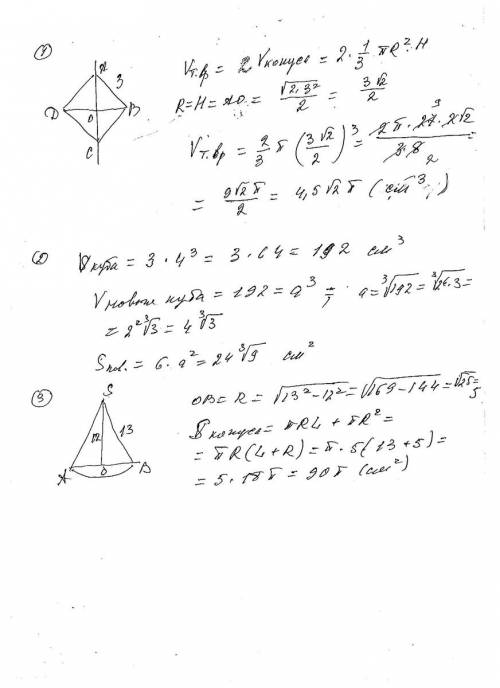 1
A
3
D
O
B
C
Vт.вр = 2 Vконуса = 2 · 1/3 πR² · H
R = H = AO = √(2·3²)/2 = 3√2/2
Vт.вр = 2/3 π (3√2/2)³ = 2π · 27 · 2√2 / 3·8 =
9
2
= 9√2π/2 = 4,5√2π (см³)
2
Vкуба = 3 · 4³ = 3 · 64 = 192 см³
Vнового куба = 192 = a³ ; a = ∛192 = ∛(2⁶·3) =
= 2²∛3 = 4∛3
Sпов. = 6 · a² = 24∛9 см²
3
S
12
13
A
O
B
OB = R = √(13²-12²) = √(169-144) = √25 =
5
Sконуса = πRL + πR² =
= πR(L+R) = π · 5(13+5) =
= 5 · 18π = 90π (см²)